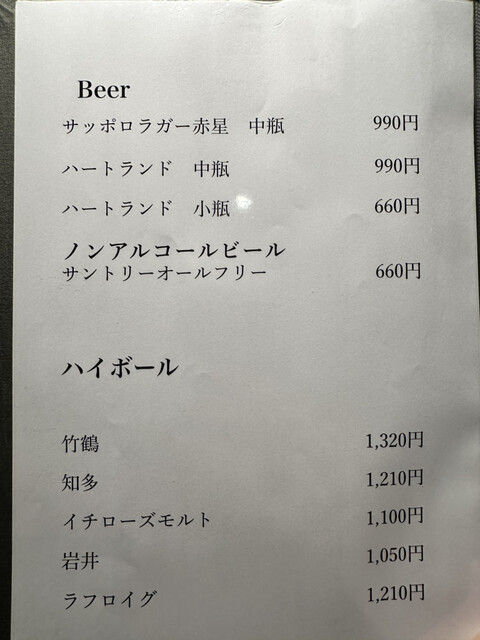 Beer
サッポロラガー赤星　中瓶　990円
ハートランド　中瓶　990円
ハートランド　小瓶　660円
ノンアルコールビール
サントリーオールフリー　660円
ハイボール
竹鶴　1,320円
知多　1,210円
イチローズモルト　1,100円
岩井　1,050円
ラフロイグ　1,210円